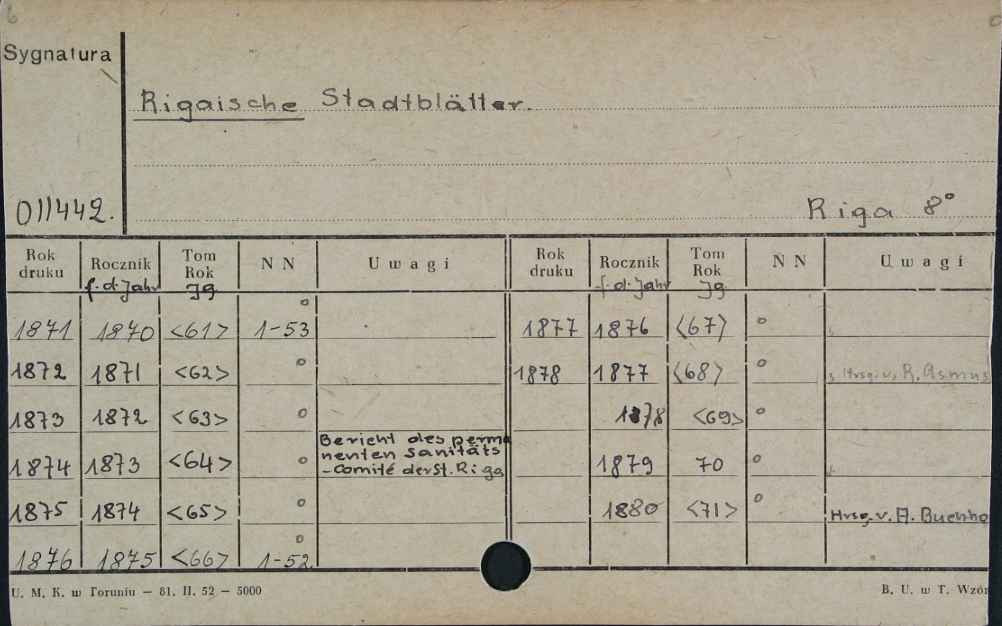 6
Sygnatura
Rigaische Stadtblätter.
011442.
Riga 8°
Rok druku | Rocznik f. d. Jahr | Tom Rok Jg | N N | Uwagi | Rok druku | Rocznik f. d. Jahr | Tom Rok Jg | N N | Uwagi
1871 | 1870 | <61> | 1-53 ° | | 1877 | 1876 | <67> | ° |
1872 | 1871 | <62> | ° | | 1878 | 1877 | <68> | ° | Hrsg. v. R. Asmus
1873 | 1872 | <63> | ° | | | 1878 | <69> | ° |
1874 | 1873 | <64> | ° | Bericht des perma nenten Sanitäts -Comité der St. Riga | | 1879 | 70 | ° |
1875 | 1874 | <65> | ° | | | 1880 | <71> | ° | Hrsg. v. A. Buchho
1876 | 1875 | <66> | 1-52. ° | | | | | |
U. M. K. w Toruniu — 81. II. 52 — 5000
B. U. w T. Wzór